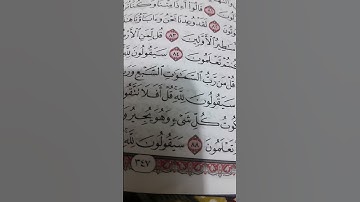 قَالُوٓا۟ أَءِذَا مِتْنَا وَكُنَّا
لَقَدْ وُعِدْنَا نَحْنُ وَءَابَآؤُنَا
طِيرُ ٱلْأَوَّلِينَ ٨٣ قُل لِّمَنِ ٱلْأَرْ
تُمْ تَعْلَمُونَ ٨٤ سَيَقُولُونَ لِلَّهِ
قُلْ مَن رَّبُّ ٱلسَّمَٰوَٰتِ ٱلسَّبْعِ وَرَ
سَيَقُولُونَ لِلَّهِ قُلْ أَفَلَا تَتَّقُو
كُوتُ كُلِّ شَىْءٍ وَهُوَ يُجِيرُ وَ
تَعْلَمُونَ ٨٨ سَيَقُولُونَ لِلَّهِ
٣٤٧